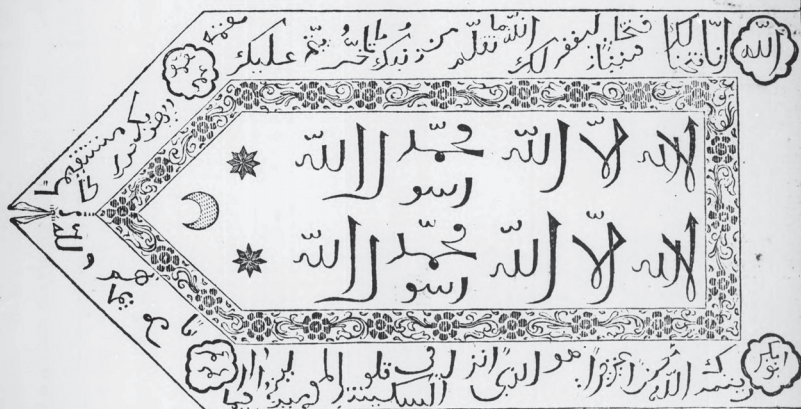 الله
انا فتحنا لك فتحا مبينا ليغفر لك الله ما تقدم من ذنبك وما تأخر ويتم نعمته عليك
محمد
ويهديك صراطا مستقيما
لا اله الا الله محمد رسول الله
لا اله الا الله محمد رسول الله
ابو بكر
وينصرك الله نصرا عزيزا هو الذى انزل السكينة فى قلوب المومنين
مع ايمانهم ولله